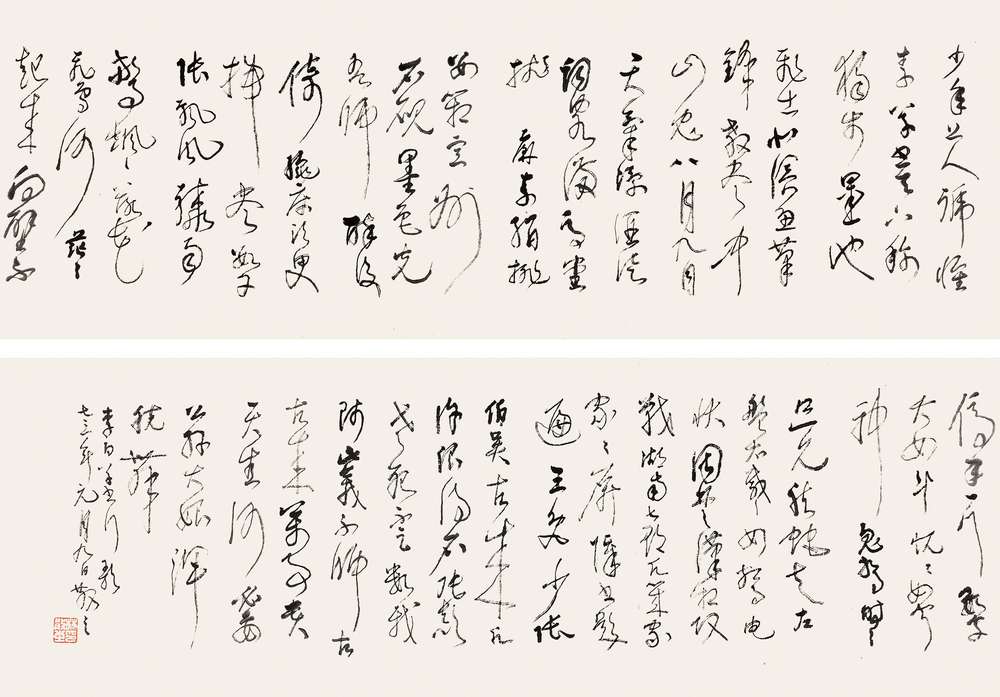 少年上人號懷
素草書天下稱
獨步墨池
飛出北溟魚筆
鋒殺盡中
山兔八月九月
天氣涼酒徒
詞客滿高堂
牋麻素絹排
數箱宣州
石硯墨色光
吾師醉後
倚繩床須臾
掃盡數千
張飄風驟雨
驚颯颯落花
飛雪何茫茫
起來向壁不
停手一行數字
大如斗怳怳如聞
神鬼驚時時
只見龍蛇走左
盤右蹙如驚電
狀同楚漢相攻
戰湖南七郡凡幾家
家家屏障書題
遍王逸少張
伯英古來幾
許浪得名張顛
老死不足數我
師此義不師古
古來萬事貴
天生何必要
公孫大娘渾
脫舞
李白草書行歌
七三年元月九日散之